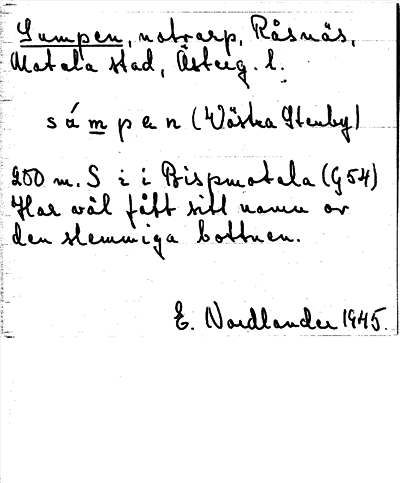 Sumpen, notvarp, Råsnäs,
Motala stad, Österg. l.
sámpen (Västra Stenby)
200 m. S i i Bispmotala (G54)
Har väl fått sitt namn av
den slemmiga bottnen.
E. Nordlander 1945.